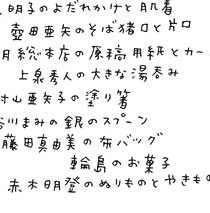 明子のよだれかけと肌着
壺田亜矢のそば猪口と片口
月総本店の原稿用紙とカー
上泉秀人の大きな湯呑み
村山亜矢子の塗り箸
谷川まみの銀のスプーン
藤田真由美の布バッグ
輪島のお菓子
赤木明登のぬりものとやきもの